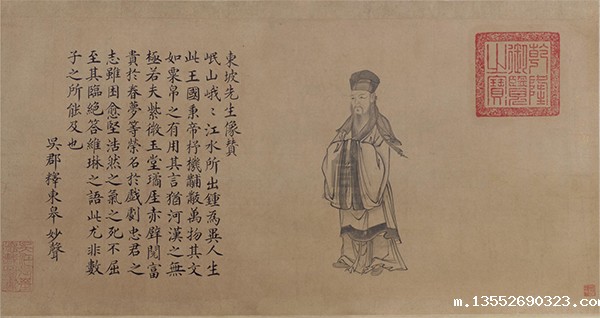 乾隆
御覽
之寶
東坡先生像贊
岷山峨〻江水所出鍾為異人生
此王國秉帝杼機黼黻萬物其文
如粟帛之有用其言猶河漢之無
極若夫紫微玉堂瓊厓赤壁閱富
貴於春夢等榮名於戲劇忠君之
志雖困愈堅浩然之氣之死不屈
至其臨絕答維琳之語此尤非數
子之所能及也
吳郡釋東皋妙聲
m.13552690323.com